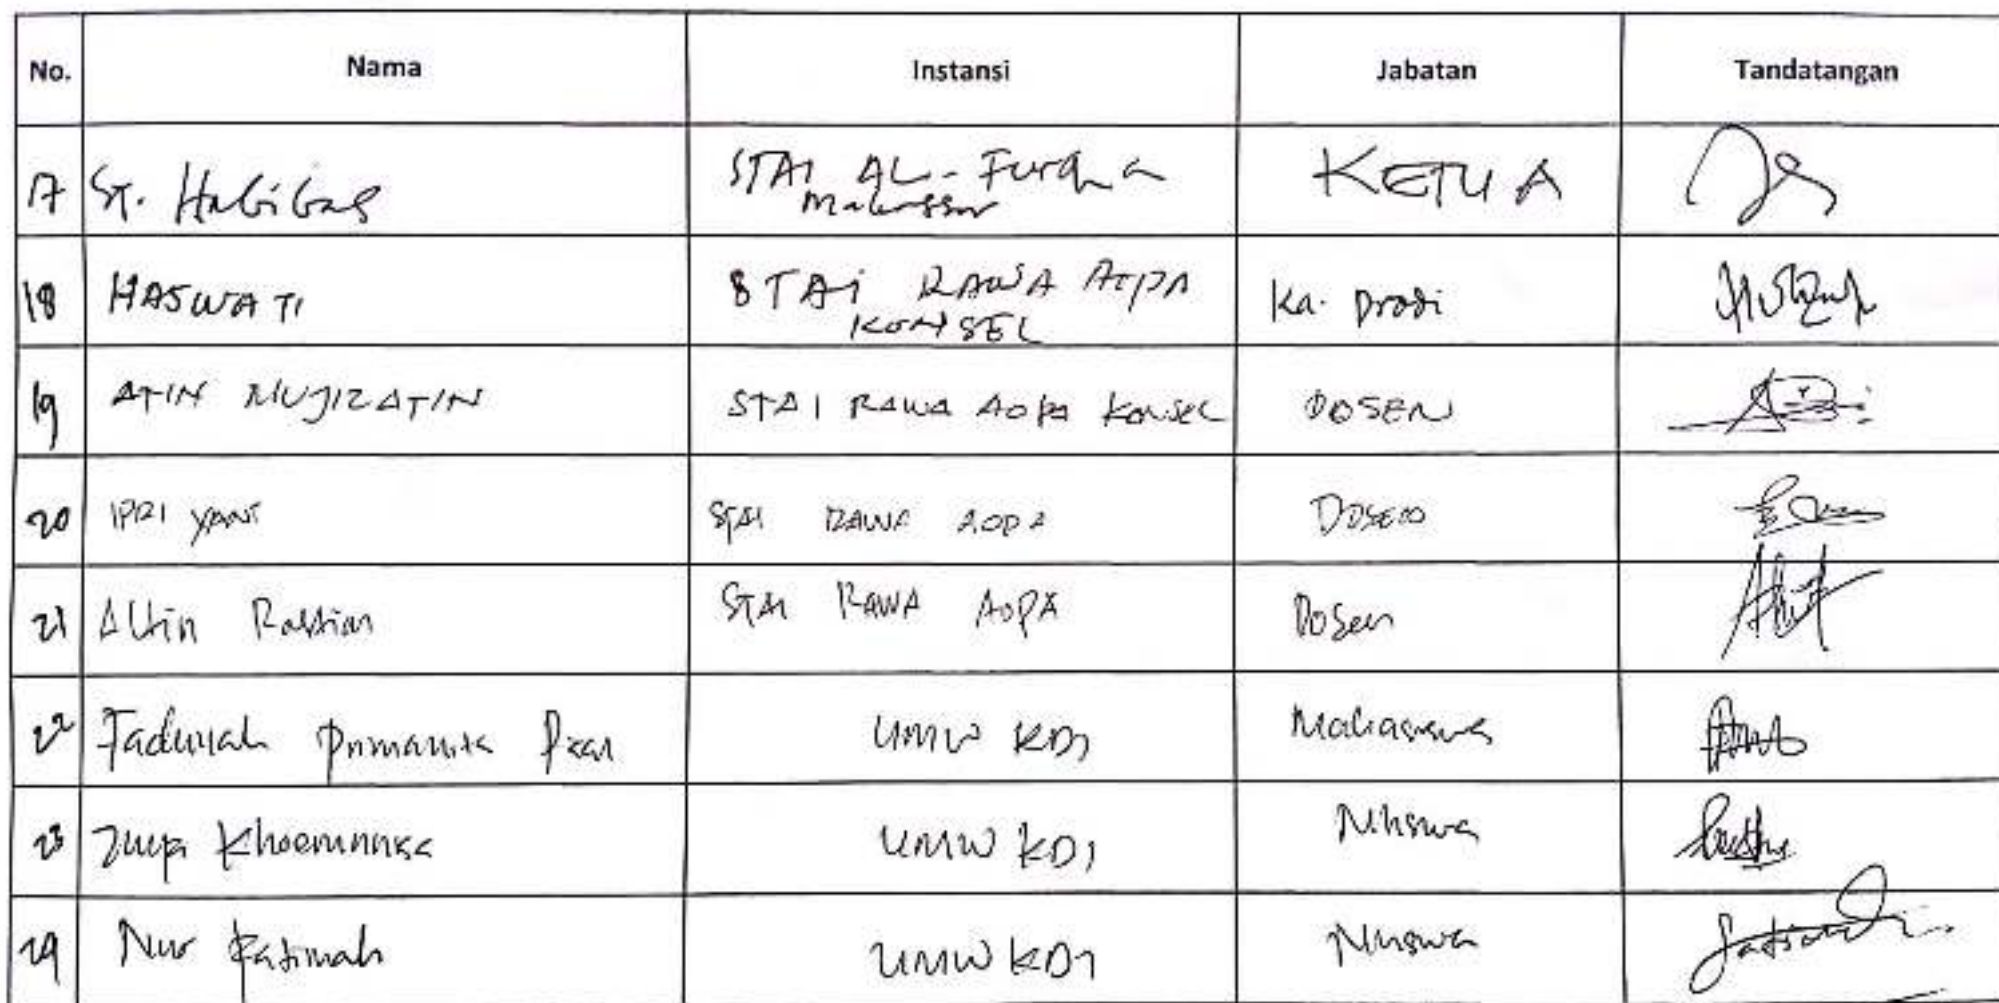 No. Nama Instansi Jabatan Tandatangan
17 St. Habibah STAI AL-Furqan Makassar KETUA
18 HASWATI STAI RAWA AOPA KONSEL Ka. prodi
19 ATIN MUJIZATIN STAI RAWA AOPA KONSEL DOSEN
20 IPRI YANI STAI RAWA AOPA DOSEN
21 STAI RAWA AOPA Dosen
22 UMW KDI Mahasiswa
23 UMW KDI Mhswa
24 Nur Fatimah UMW KDI Mhswa